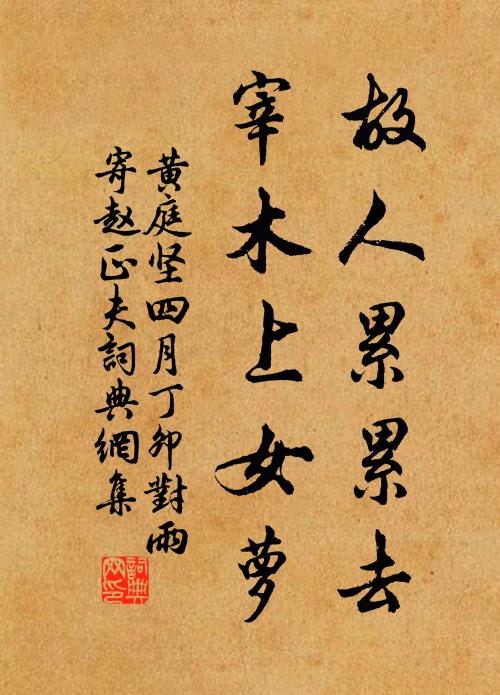 故人累累去
宰木上女萝
黄庭坚四月丁卯對雨
寄赵正夫詞典網集
詞典
网印